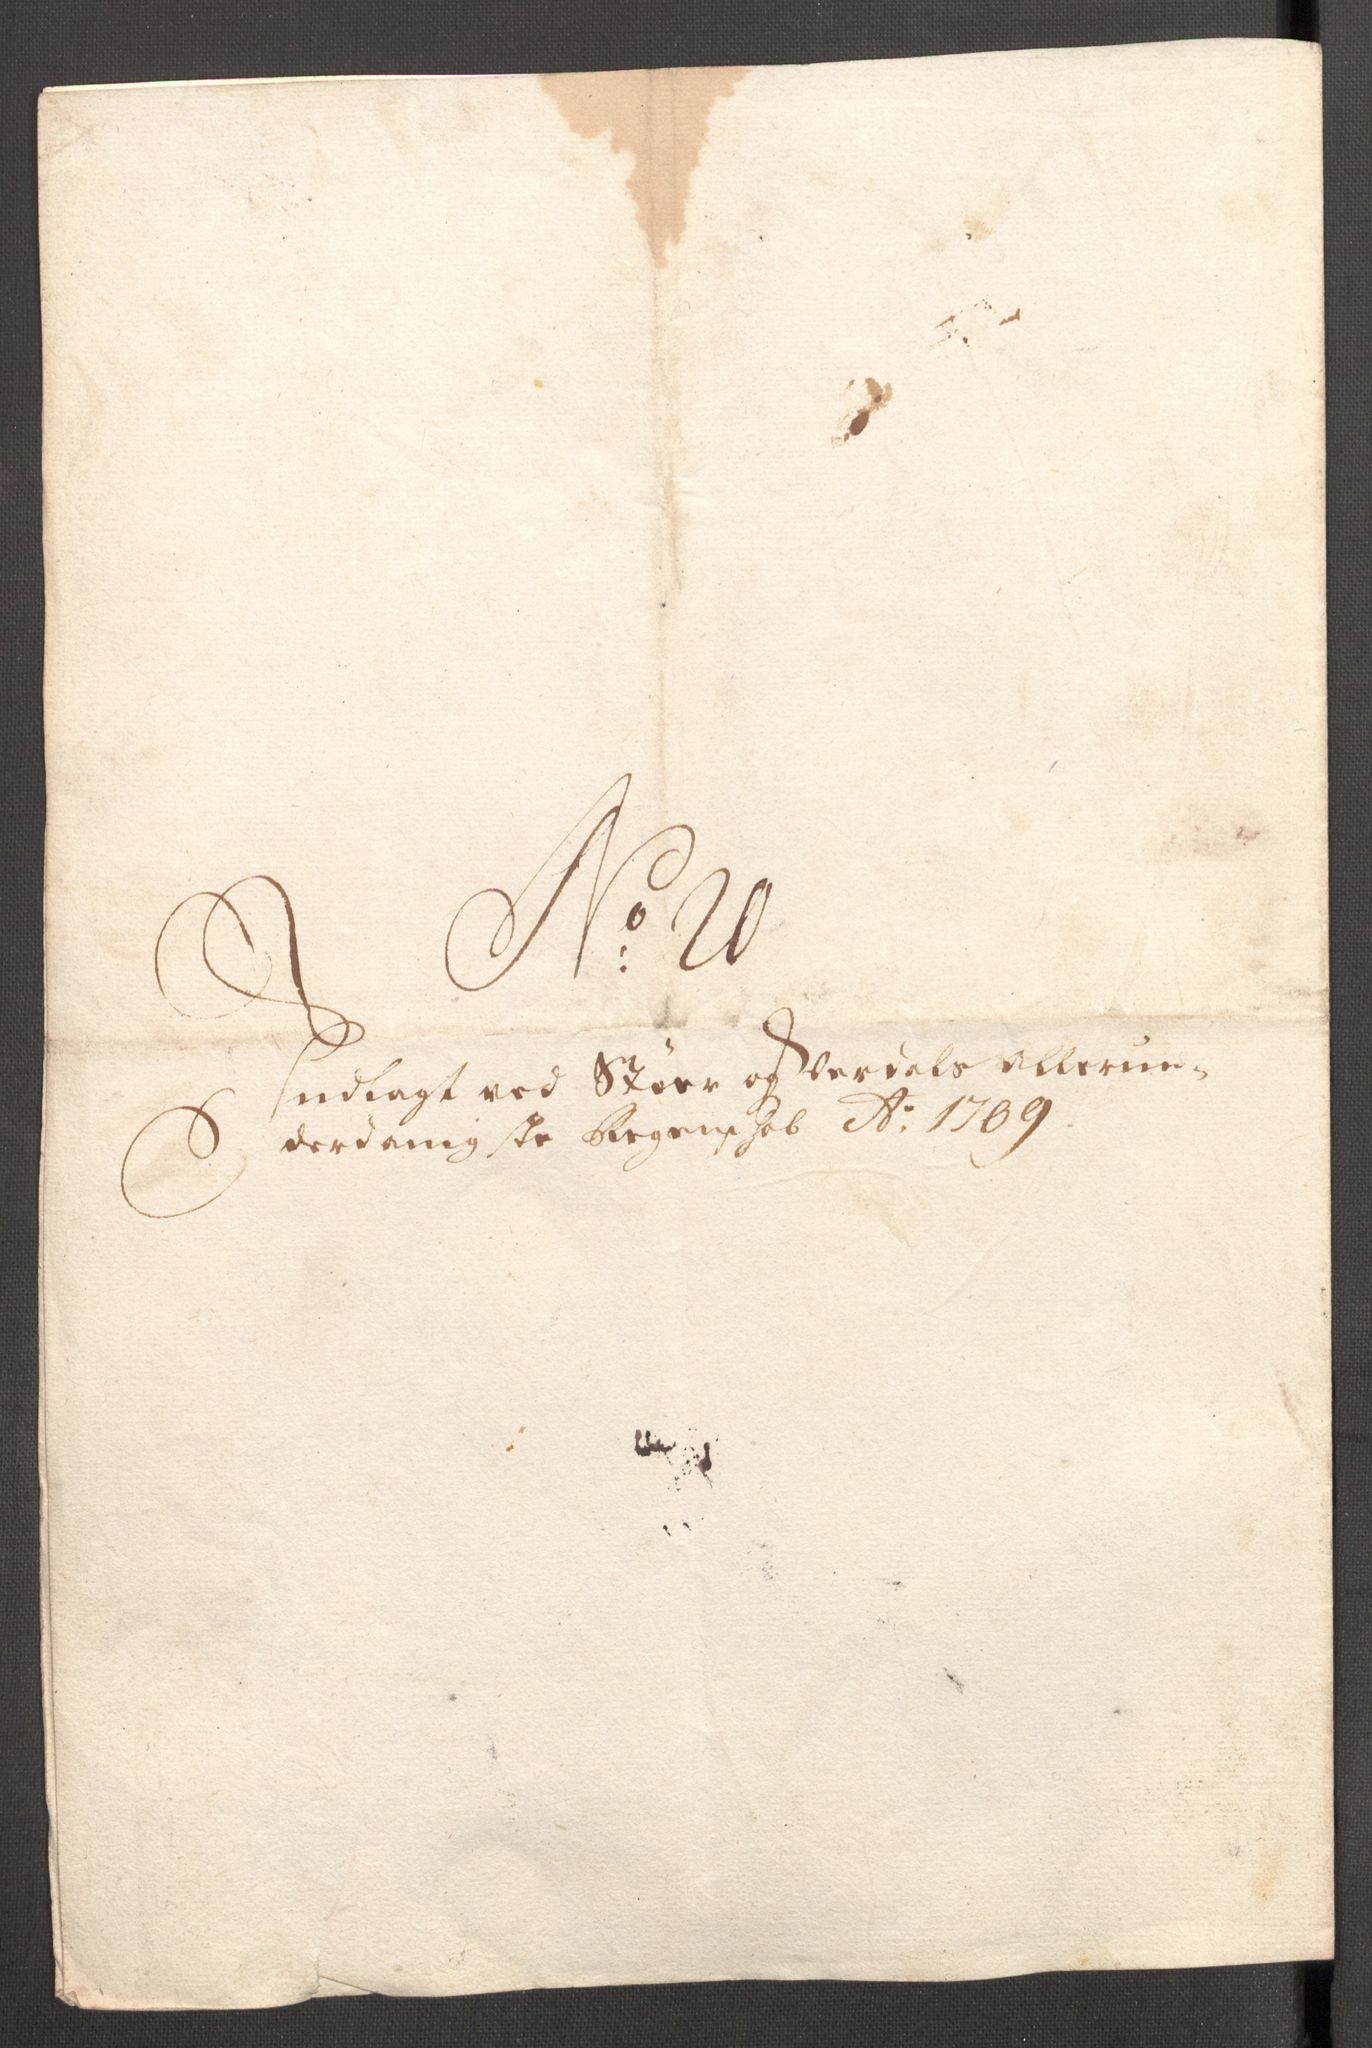 No: 20
Indlagt ved Støer og Verdals allerun-
derdanigste Regenschab Ao: 1709.